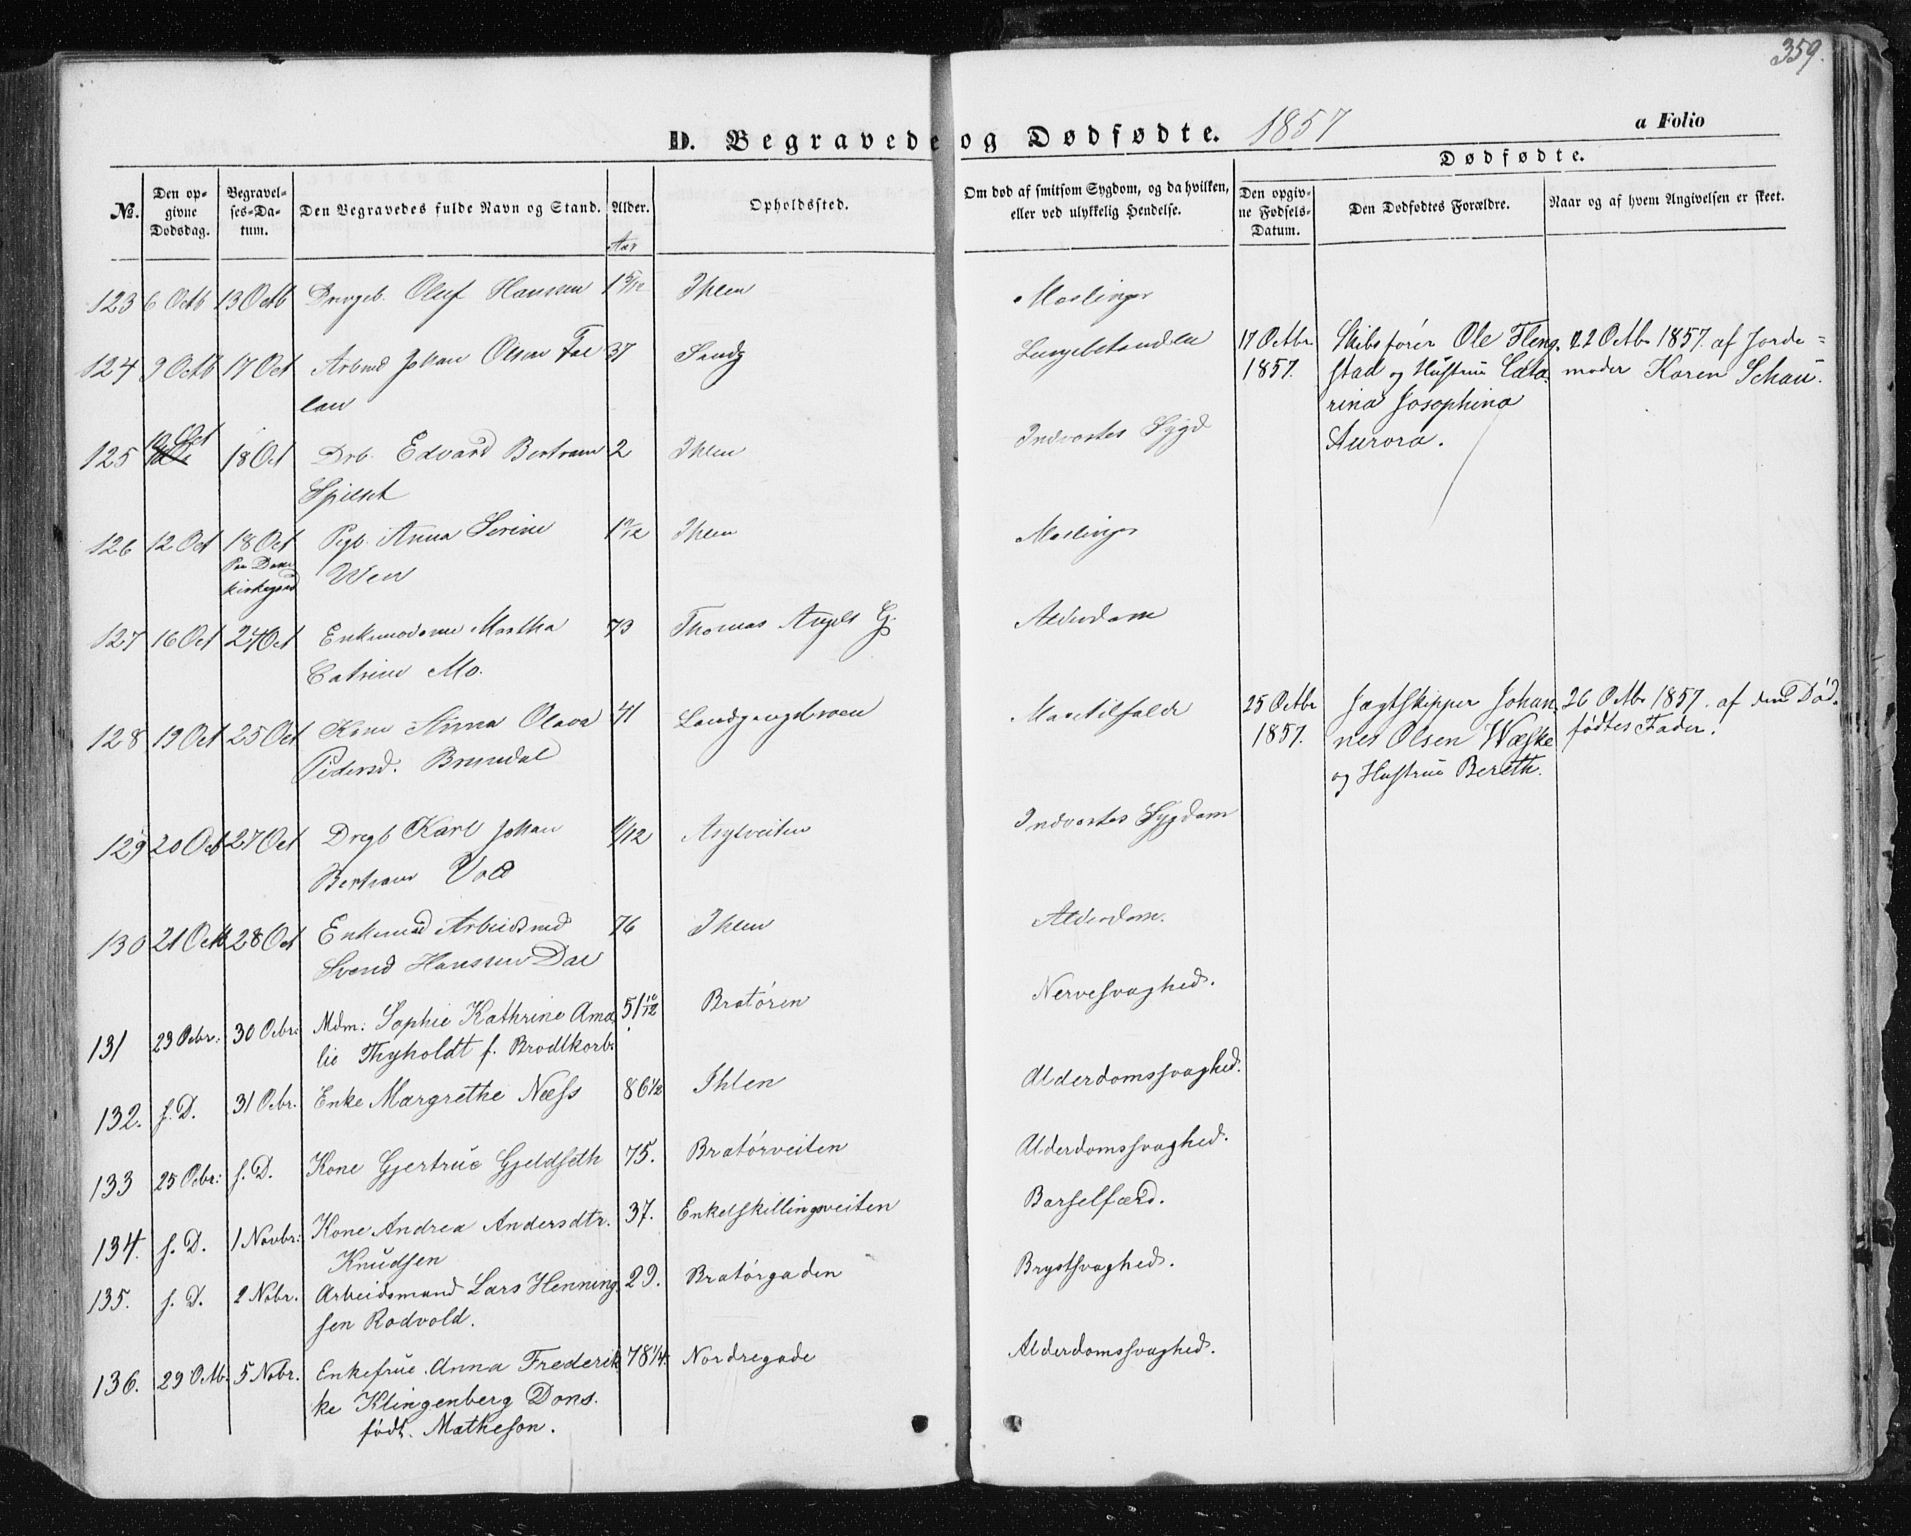 359.
D. Begravede og Dødfødte. 1857
a Folio
No.
Den opgivne Dødsdag.
Begravelses-Datum.
Den Begravedes fulde Navn og Stand.
Alder.
Aar
Opholdssted.
Om død af smitsom Sygdom, og da hvilken, eller ved ulykkelig Hendelse.
Dødfødte.
Den opgivne Fødsels-Datum.
Den Dødfødtes Forældre.
Naar og af hvem Angivelsen er skeet.
123 6 Octb 13 Octb Drengeb. Oluf Hansen 1 5/12 Ihlen Meslinger
124 9 Octb 17 Oct Arbmd Johan Olsen Fae 37 Sandg
lau
17 Octbr 1857. Skibsfører Ole Fleng-
stad og Hustrue Cata-
rina Josephina
Aurora.
22 Octbr 1857. af Jorde-
moder Karen Schau.
125 10 Oct 18 Oct Drb. Edvard Bertram 2 Ihlen Indvortes Sygd
126 12 Oct 18 Oct Pigb. Anna Serine Ihlen Meslinger
Paa Dom
kirkegaard
Wen
127 16 Oct 24 Oct Enkemadame Martha 73 Thomas Angels G. Alderdom
Catrine Mo.
128 19 Oct 25 Oct Kone Anna Olava 41
Pedersd. Brendal
25 Octbr 1857. Jagtskipper Johan-
nes Olsen Wæske
og Hustrue Bereth.
26 Octbr 1857. af den Død-
fødtes Fader.
129 20 Oct 27 Oct Drgb Karl Johan Asylveiten Indvortes Sygdom
Bertram Vold
130 21 Octb 28 Oct Enkemand Arbeidsmd 76 Ihlen Alderdom.
Svend Hanssen Dae
131 23 Ocbr. 30 Ocbr. Mdm: Sophie Kathrine Ama- 51 10/12 Bratøren Nervesvaghed.
lie Thyholdt f. Brodtkorb.
132. s. D. 31 Ocbr. Enke Margrethe Næss 86 1/2 Ihlen Alderdomssvaghed.
133 25 Ocbr: s. D. Kone Gjertrue Gjeldseth 75. Bratørveiten Alderdomssvaghed.
134. s. D. 1 Novbr: Kone Andrea Andersdtr. 37. Enkelskillingsveiten Barselfærd.
Knudsen
135. s. D. 2 Nobr. Arbeidsmand Lars Henning 29. Bratørgaden Brystsvaghed.
sen Rodvold.
136. 29 Octb. 5 Nobr. Enkefrue Anna Frederik 78 1/4. Nordregade Alderdomssvaghed.
ke Klingenberg Dons.
født. Matheson.